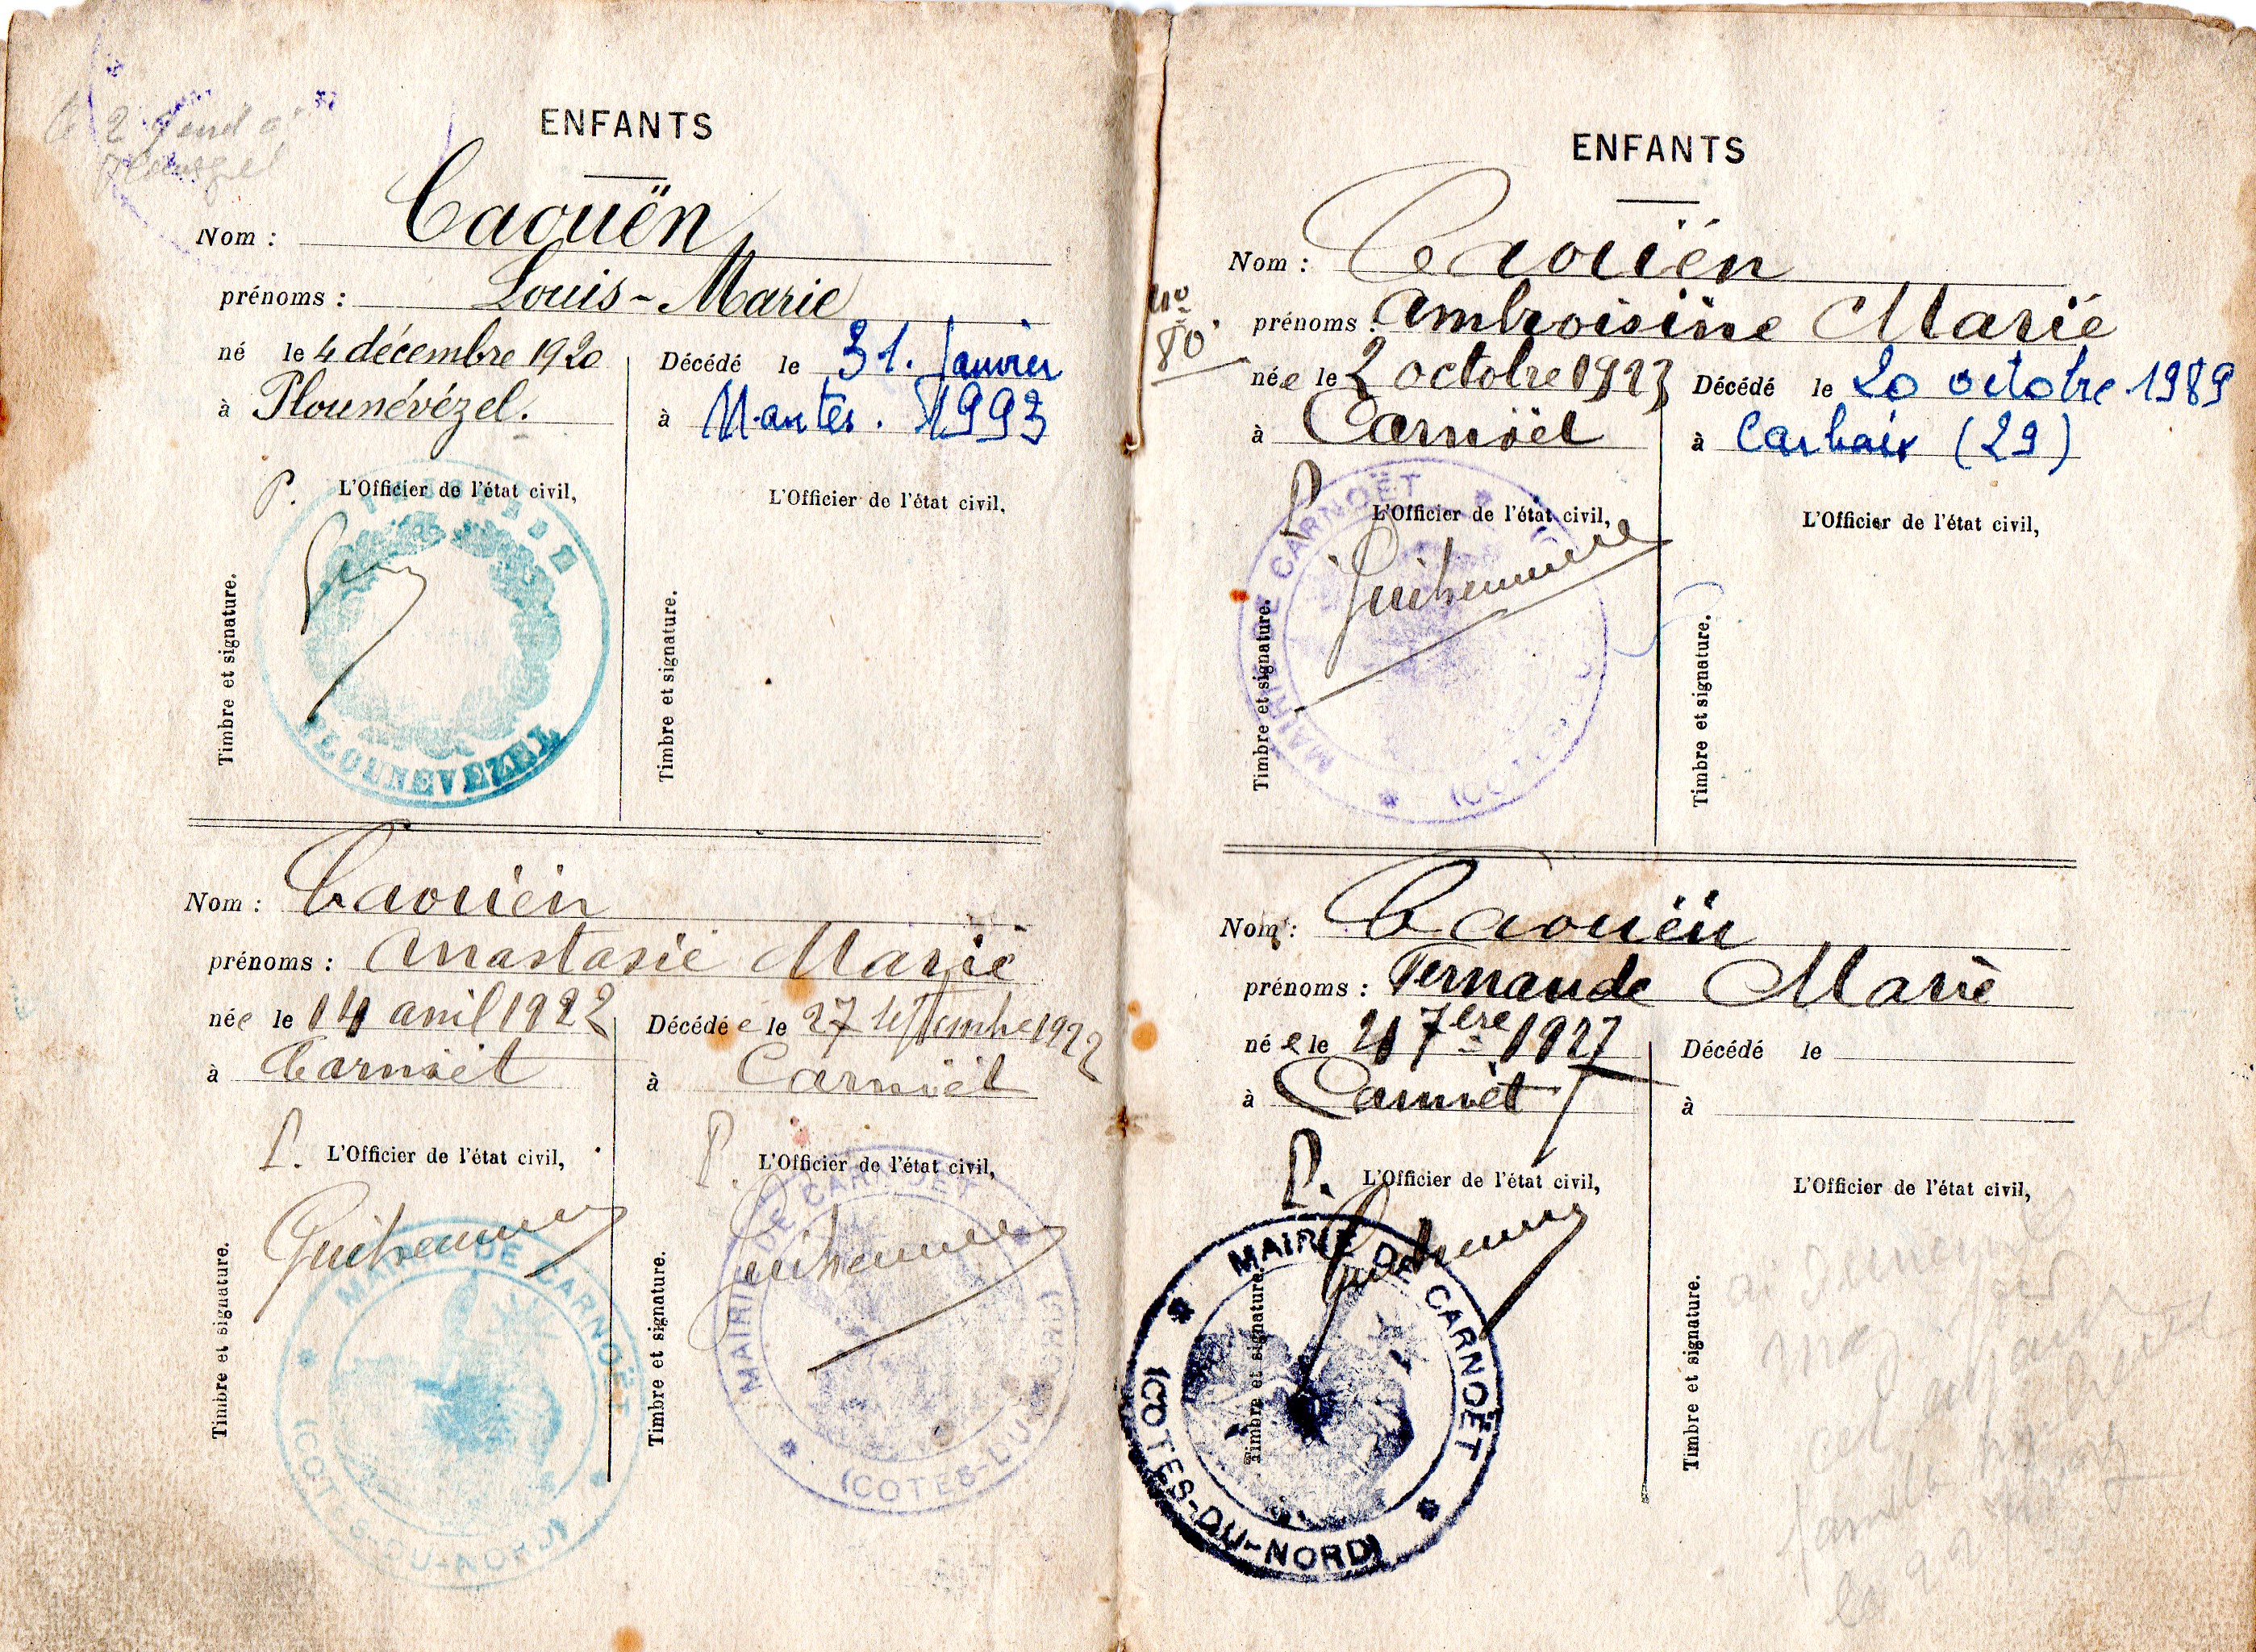 ENFANTS
Nom : Caouën
prénoms : Louis-Marie
né le 4 décembre 1920
à Plounévézel.
Décédé le 31. Janvier
à Nantes. 1993
P. L'Officier de l'état civil,
L'Officier de l'état civil,
Timbre et signature.
Timbre et signature.
PLOUNEVEZEL
Nom : Caouën
prénoms : Anastasie Marie
née le 14 avril 1922
à Carnoët
Décédée le 27 septembre 1922
à Carnoët
P. L'Officier de l'état civil,
P. L'Officier de l'état civil,
Timbre et signature.
Timbre et signature.
MAIRIE DE CARNOËT
(COTES-DU-NORD)
MAIRIE DE CARNOËT
(COTES-DU-NORD)
ENFANTS
Nom : Caouën
No
80.
prénoms : Ambroisine Marie
née le 2 octobre 1923
à Carnoët
Décédé le 20 octobre 1989
à Carhaix (29)
P. L'Officier de l'état civil,
L'Officier de l'état civil,
Timbre et signature.
Timbre et signature.
MAIRIE DE CARNOËT
Nom : Caouën
prénoms : Fernande Marie
née le 21 7bre 1927
à Carnoët
Décédé le
à
P. L'Officier de l'état civil,
L'Officier de l'état civil,
Timbre et signature.
Timbre et signature.
MAIRIE DE CARNOËT
(COTES-DU-NORD)